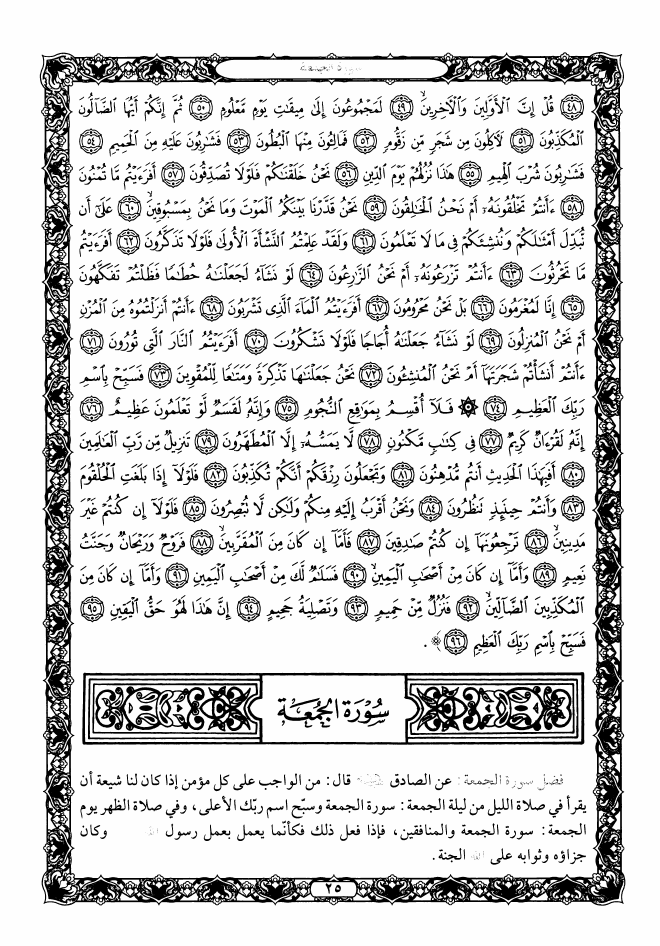 ﴿٤٨﴾ قُلْ إِنَّ الْأَوَّلِينَ وَالْآخِرِينَ ﴿٤٩﴾ لَمَجْمُوعُونَ إِلَىٰ مِيقَاتِ يَوْمٍ مَعْلُومٍ ﴿٥٠﴾ ثُمَّ إِنَّكُمْ أَيُّهَا الضَّالُّونَ
الْمُكَذِّبُونَ ﴿٥١﴾ لَآكِلُونَ مِنْ شَجَرٍ مِّن زَقُّومٍ ﴿٥٢﴾ فَمَالِئُونَ مِنْهَا الْبُطُونَ ﴿٥٣﴾ فَشَارِبُونَ عَلَيْهِ مِنَ الْحَمِيمِ ﴿٥٤﴾
فَشَارِبُونَ شُرْبَ الْهِيمِ ﴿٥٥﴾ هَٰذَا نُزُلُهُمْ يَوْمَ الدِّينِ ﴿٥٦﴾ نَحْنُ خَلَقْنَاكُمْ فَلَوْلَا تُصَدِّقُونَ ﴿٥٧﴾ أَفَرَءَيْتُم مَّا تُمْنُونَ
﴿٥٨﴾ ءَأَنتُمْ تَخْلُقُونَهُ أَمْ نَحْنُ الْخَالِقُونَ ﴿٥٩﴾ نَحْنُ قَدَّرْنَا بَيْنَكُمُ الْمَوْتَ وَمَا نَحْنُ بِمَسْبُوقِينَ ﴿٦٠﴾ عَلَىٰ أَن
نُّبَدِّلَ أَمْثَالَكُمْ وَنُنشِئَكُمْ فِي مَا لَا تَعْلَمُونَ ﴿٦١﴾ وَلَقَدْ عَلِمْتُمُ النَّشْأَةَ الْأُولَىٰ فَلَوْلَا تَذَكَّرُونَ ﴿٦٢﴾ أَفَرَءَيْتُم
مَّا تَحْرُثُونَ ﴿٦٣﴾ ءَأَنتُمْ تَزْرَعُونَهُ أَمْ نَحْنُ الزَّارِعُونَ ﴿٦٤﴾ لَوْ نَشَاءُ لَجَعَلْنَاهُ حُطَامًا فَظَلْتُمْ تَفَكَّهُونَ
﴿٦٥﴾ إِنَّا لَمُغْرَمُونَ ﴿٦٦﴾ بَلْ نَحْنُ مَحْرُومُونَ ﴿٦٧﴾ أَفَرَءَيْتُمُ الْمَاءَ الَّذِي تَشْرَبُونَ ﴿٦٨﴾ ءَأَنتُمْ أَنزَلْتُمُوهُ مِنَ الْمُزْنِ
أَمْ نَحْنُ الْمُنزِلُونَ ﴿٦٩﴾ لَوْ نَشَاءُ جَعَلْنَاهُ أُجَاجًا فَلَوْلَا تَشْكُرُونَ ﴿٧٠﴾ أَفَرَءَيْتُمُ النَّارَ الَّتِي تُورُونَ ﴿٧١﴾
ءَأَنتُمْ أَنشَأْتُمْ شَجَرَتَهَا أَمْ نَحْنُ الْمُنشِئُونَ ﴿٧٢﴾ نَحْنُ جَعَلْنَاهَا تَذْكِرَةً وَمَتَاعًا لِّلْمُقْوِينَ ﴿٧٣﴾ فَسَبِّحْ بِاسْمِ
رَبِّكَ الْعَظِيمِ ﴿٧٤﴾ ۞ فَلَا أُقْسِمُ بِمَوَاقِعِ النُّجُومِ ﴿٧٥﴾ وَإِنَّهُ لَقَسَمٌ لَّوْ تَعْلَمُونَ عَظِيمٌ ﴿٧٦﴾
إِنَّهُ لَقُرْءَانٌ كَرِيمٌ ﴿٧٧﴾ فِي كِتَابٍ مَّكْنُونٍ ﴿٧٨﴾ لَّا يَمَسُّهُ إِلَّا الْمُطَهَّرُونَ ﴿٧٩﴾ تَنزِيلٌ مِّن رَّبِّ الْعَالَمِينَ
﴿٨٠﴾ أَفَبِهَٰذَا الْحَدِيثِ أَنتُم مُّدْهِنُونَ ﴿٨١﴾ وَتَجْعَلُونَ رِزْقَكُمْ أَنَّكُمْ تُكَذِّبُونَ ﴿٨٢﴾ فَلَوْلَا إِذَا بَلَغَتِ الْحُلْقُومَ
﴿٨٣﴾ وَأَنتُمْ حِينَئِذٍ تَنظُرُونَ ﴿٨٤﴾ وَنَحْنُ أَقْرَبُ إِلَيْهِ مِنكُمْ وَلَٰكِن لَّا تُبْصِرُونَ ﴿٨٥﴾ فَلَوْلَا إِن كُنتُمْ غَيْرَ
مَدِينِينَ ﴿٨٦﴾ تَرْجِعُونَهَا إِن كُنتُمْ صَادِقِينَ ﴿٨٧﴾ فَأَمَّا إِن كَانَ مِنَ الْمُقَرَّبِينَ ﴿٨٨﴾ فَرَوْحٌ وَرَيْحَانٌ وَجَنَّتُ
نَعِيمٍ ﴿٨٩﴾ وَأَمَّا إِن كَانَ مِنْ أَصْحَابِ الْيَمِينِ ﴿٩٠﴾ فَسَلَامٌ لَّكَ مِنْ أَصْحَابِ الْيَمِينِ ﴿٩١﴾ وَأَمَّا إِن كَانَ مِنَ
الْمُكَذِّبِينَ الضَّالِّينَ ﴿٩٢﴾ فَنُزُلٌ مِّنْ حَمِيمٍ ﴿٩٣﴾ وَتَصْلِيَةُ جَحِيمٍ ﴿٩٤﴾ إِنَّ هَٰذَا لَهُوَ حَقُّ الْيَقِينِ ﴿٩٥﴾
فَسَبِّحْ بِاسْمِ رَبِّكَ الْعَظِيمِ ﴿٩٦﴾ ﴾ .
سُورَةُ الجُمُعَة
فضل سورة الجمعة: عن الصادق قال: من الواجب على كل مؤمن إذا كان لنا شيعة أن
يقرأ في صلاة الليل من ليلة الجمعة: سورة الجمعة وسبّح اسم ربّك الأعلى، وفي صلاة الظهر يوم
الجمعة: سورة الجمعة والمنافقين، فإذا فعل ذلك فكأنّما يعمل بعمل رسول الله وكان
جزاؤه وثوابه على الله الجنة.
٢٥